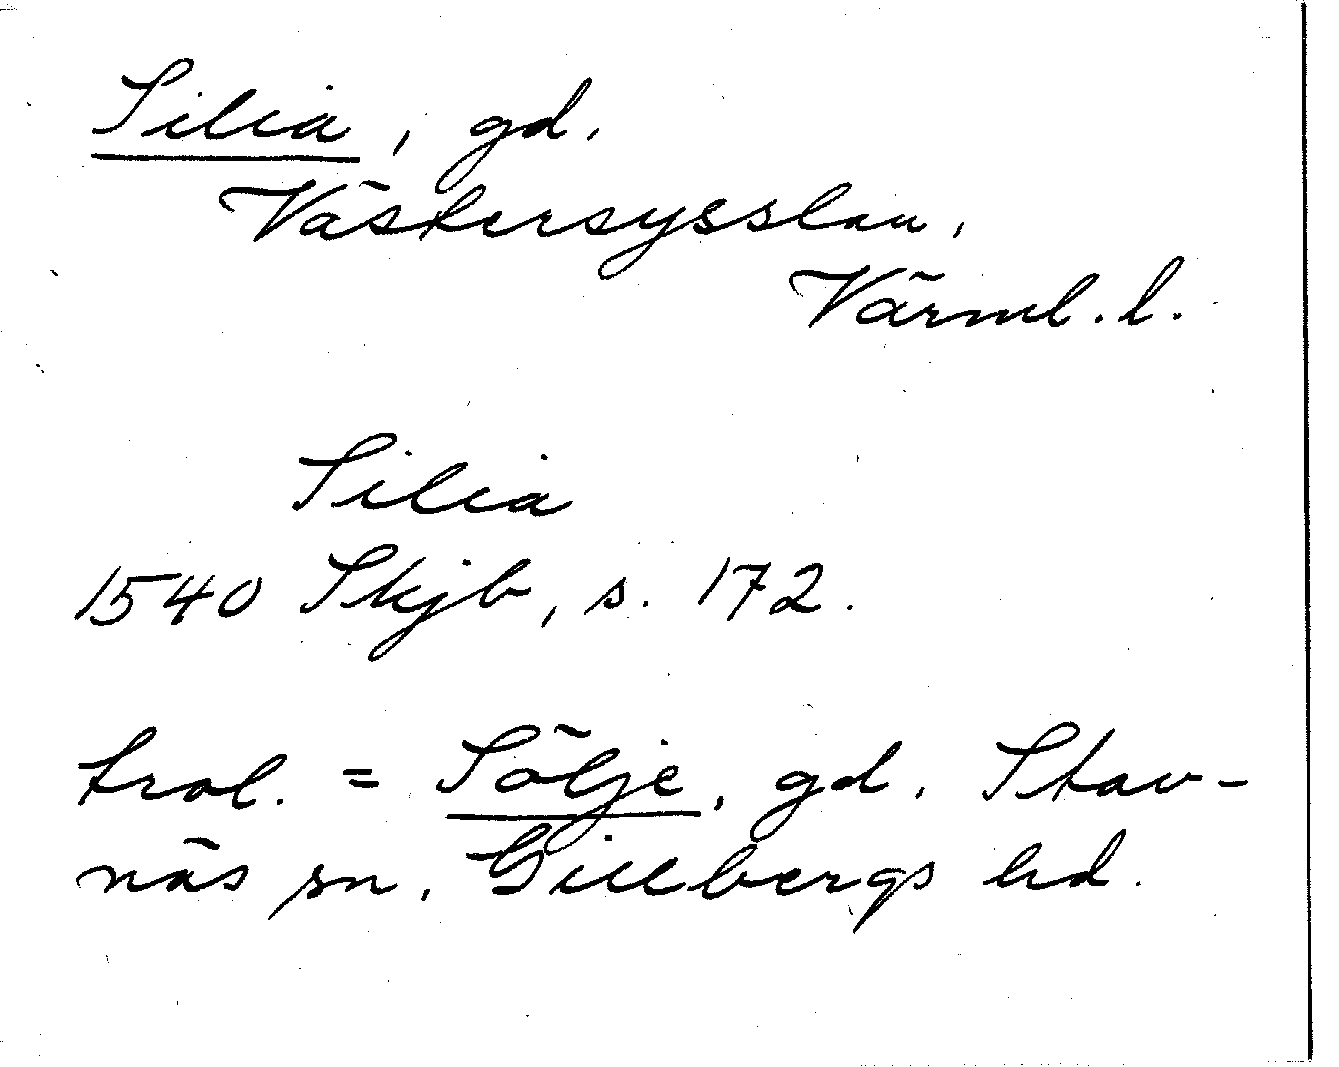 Silia, gd.
Västersysslan,
Värml. l.
Silia
1540 Skjb, s. 172.
trol. = Sölje, gd, Stav-
näs sn, Gillbergs hd.